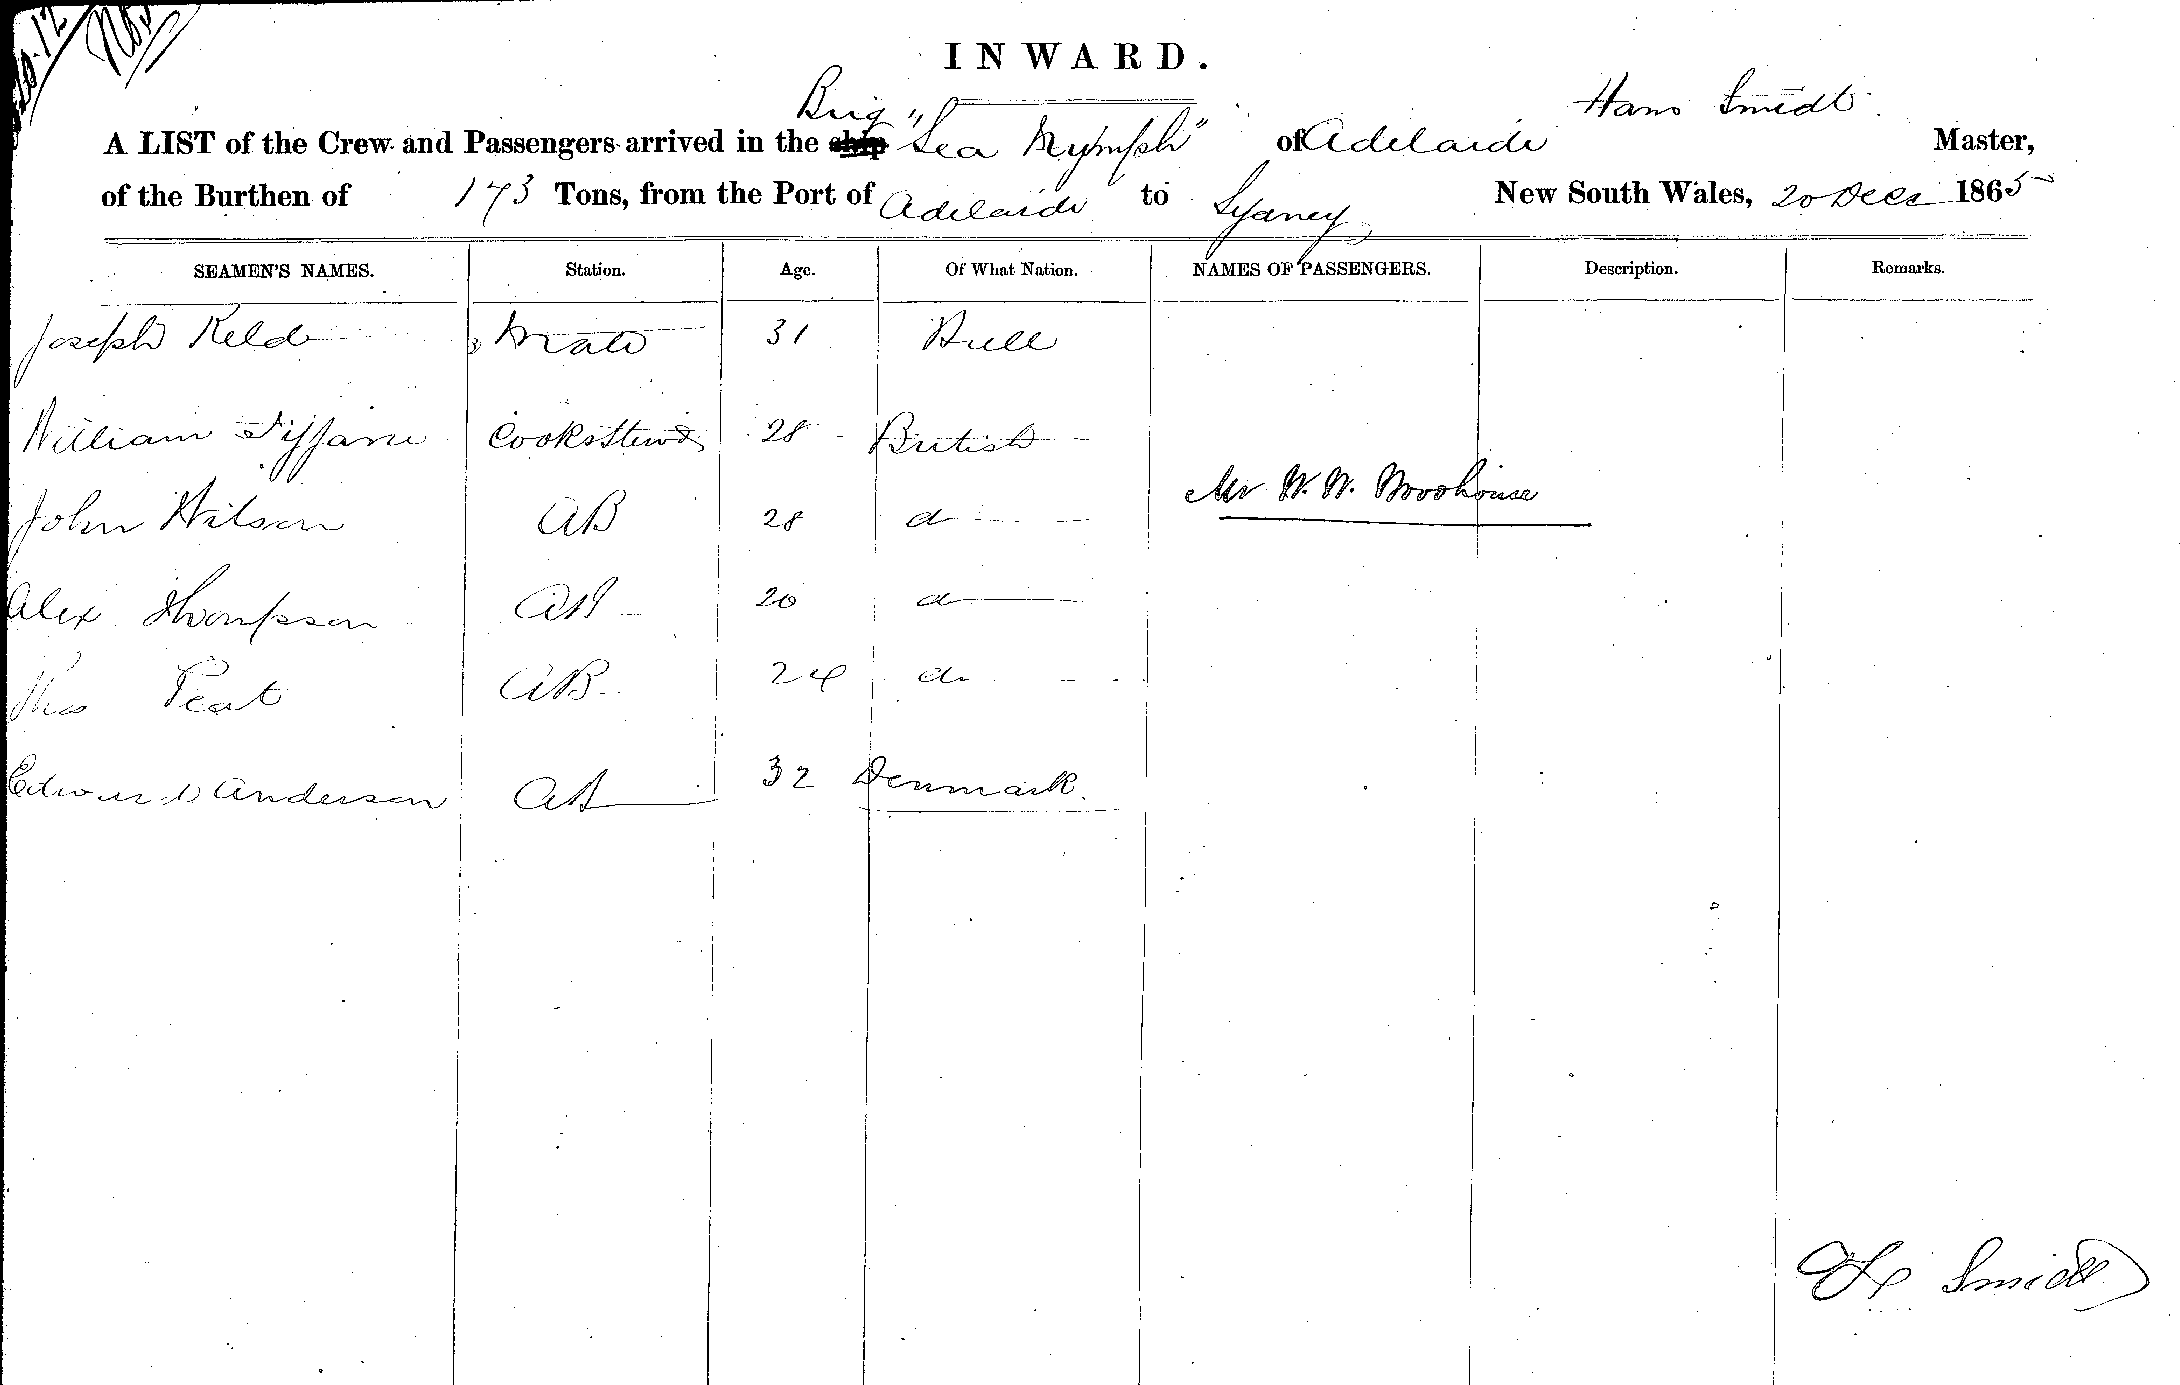 INWARD.
Brig Hans Smidt
A LIST of the Crew and Passengers arrived in the ship "Sea Nymph" of Adelaide Master,
of the Burthen of 173 Tons, from the Port of Adelaide to Sydney New South Wales, 20 Decr 1865
SEAMEN'S NAMES. Station. Age. Of What Nation. NAMES OF PASSENGERS. Description. Remarks.
Joseph Mate 31 Hull
William Tiffani Cook & Stewd 28 British
Mr W. W.
John Wilson AB 28 d
Alex Thompson AB 20 d
Thos Peat AB 24 do
Edward Anderson AB 32 Denmark.
H Smidt